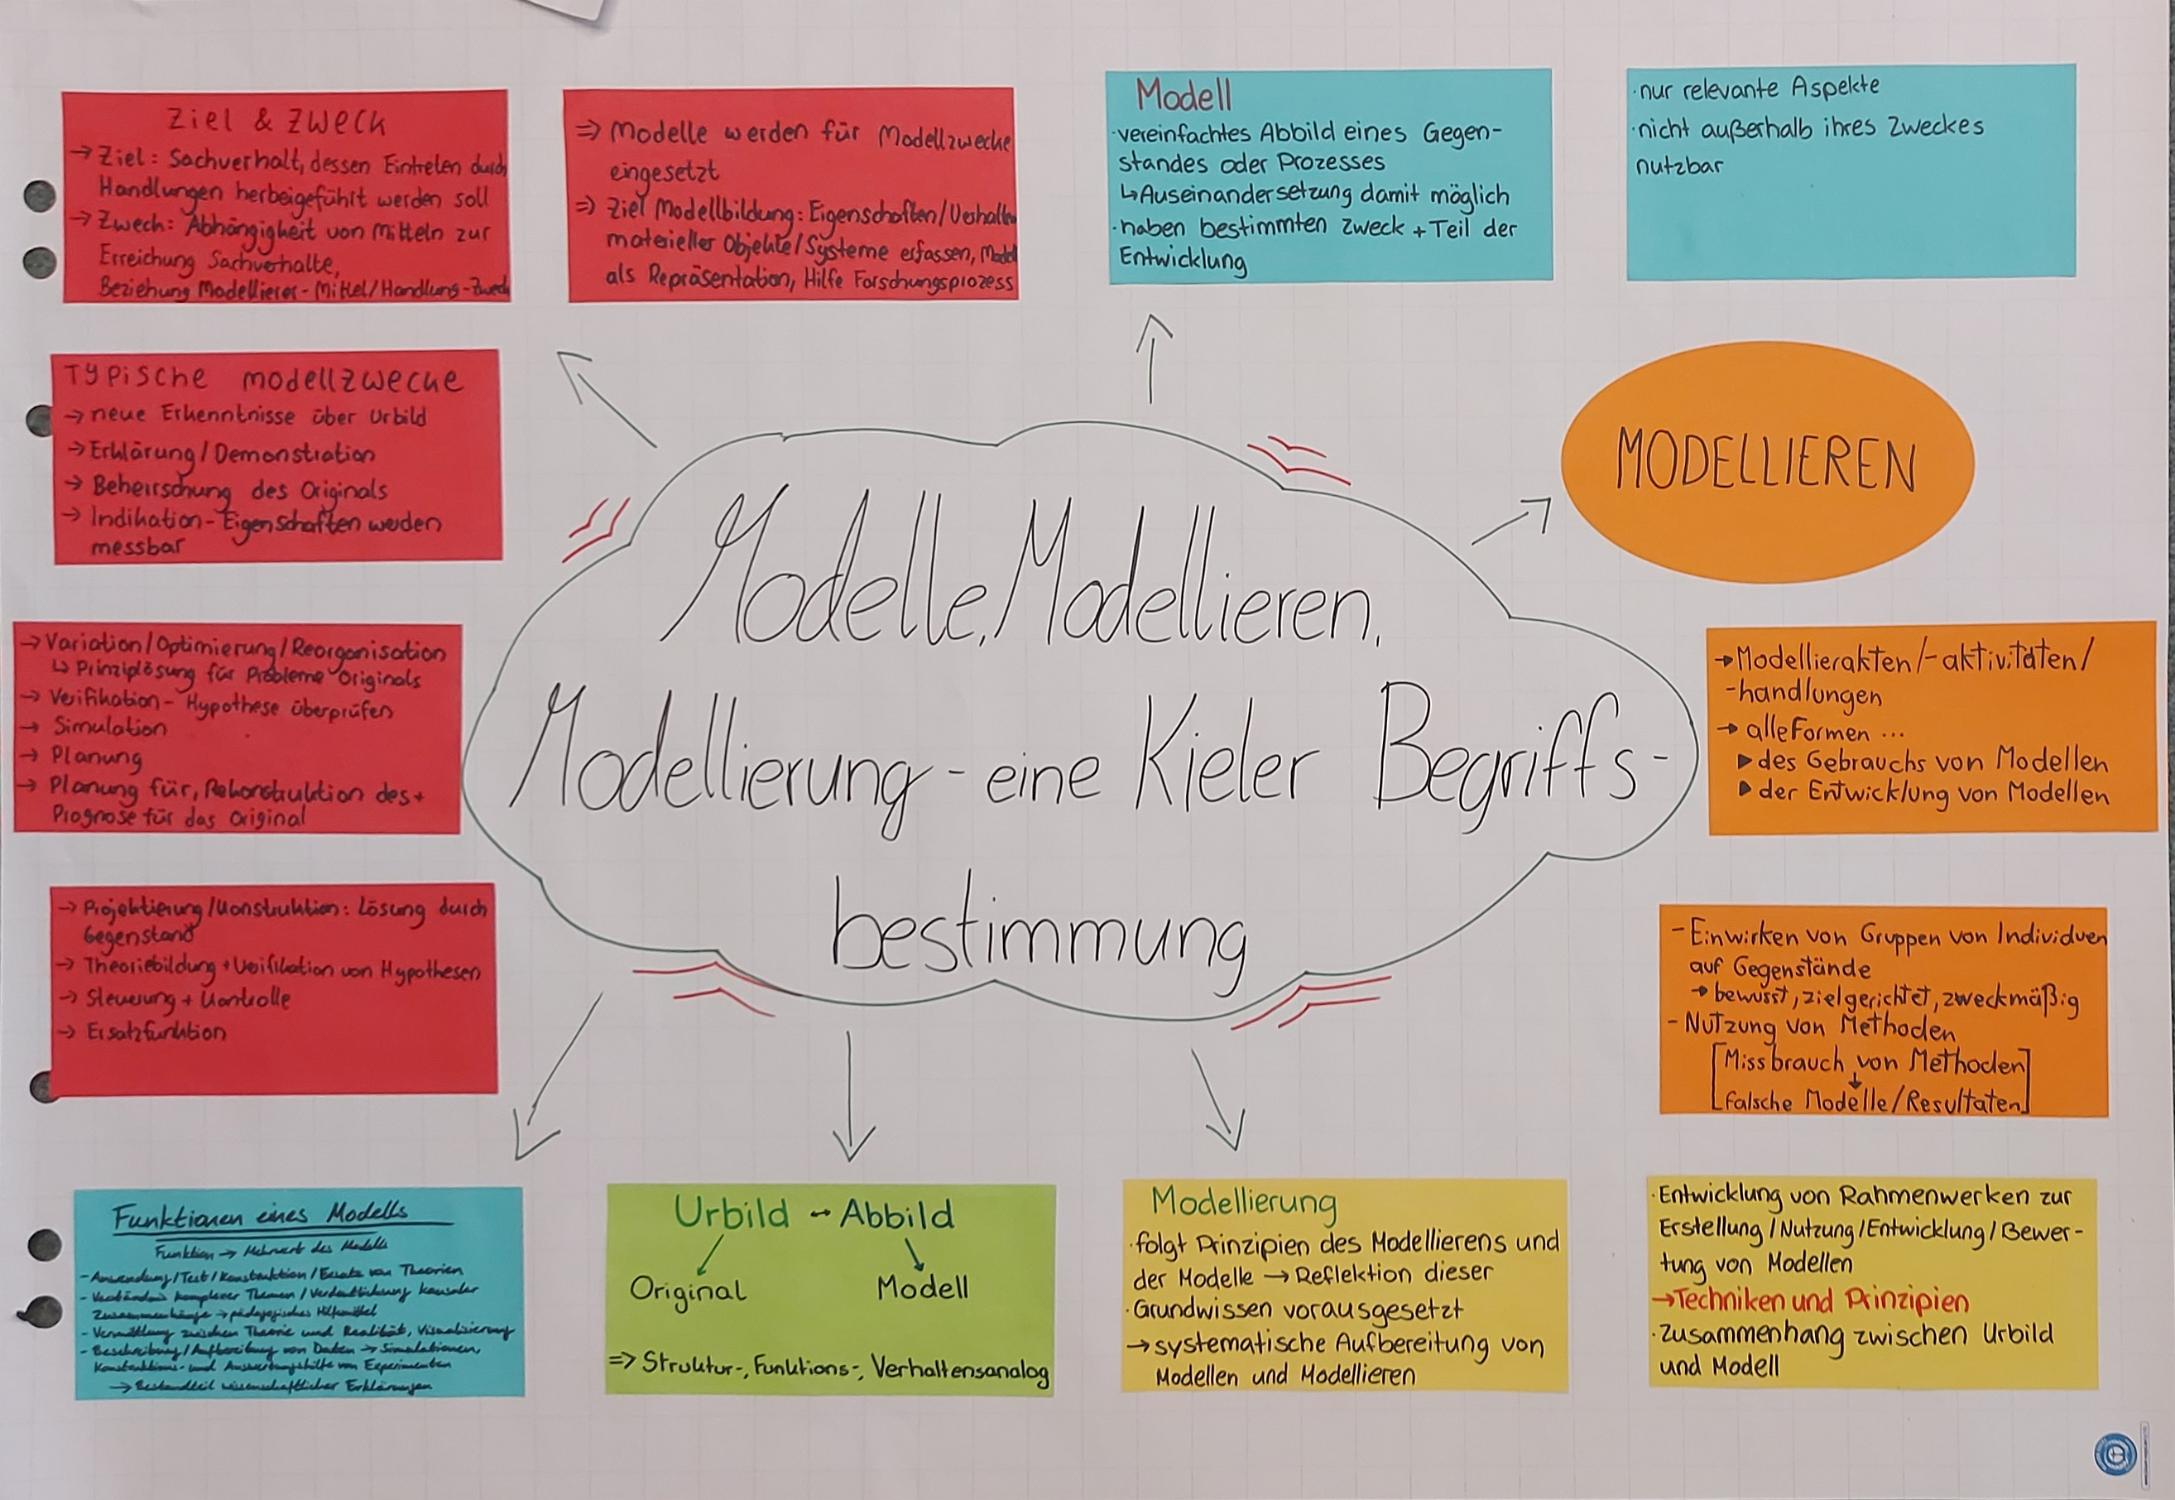 Ziel & Zweck
→ Ziel: Sachverhalt, dessen Eintreten durch
Handlungen herbeigeführt werden soll
→ Zweck: Abhängigkeit von Mitteln zur
Erreichung Sachverhalte,
Beziehung Modellierer - Mittel/Handlung - Zweck
⇒ Modelle werden für Modellzwecke
eingesetzt
⇒ Ziel Modellbildung: Eigenschaften/Verhalten
materieller Objekte/Systeme erfassen, Modell
als Repräsentation, Hilfe Forschungsprozess
Modell
· vereinfachtes Abbild eines Gegen-
standes oder Prozesses
↳ Auseinandersetzung damit möglich
· haben bestimmten Zweck + Teil der
Entwicklung
· nur relevante Aspekte
· nicht außerhalb ihres Zweckes
nutzbar
Typische Modellzwecke
→ neue Erkenntnisse über Urbild
→ Erklärung/Demonstration
→ Beherrschung des Originals
→ Indikation - Eigenschaften werden
messbar
→ Variation/Optimierung/Reorganisation
↳ Prinziplösung für Probleme Originals
→ Verifikation - Hypothese überprüfen
→ Simulation
→ Planung
→ Planung für, Rekonstruktion des +
Prognose für das Original
→ Projektierung/Konstruktion: Lösung durch
Gegenstand
→ Theoriebildung + Verifikation von Hypothesen
→ Steuerung + Kontrolle
→ Ersatzfunktion
Modelle, Modellieren,
Modellierung - eine Kieler Begriffs-
bestimmung
MODELLIEREN
→ Modellierakten/-aktivitäten/
-handlungen
→ alle Formen ...
▸ des Gebrauchs von Modellen
▸ der Entwicklung von Modellen
- Einwirken von Gruppen von Individuen
auf Gegenstände
→ bewusst, zielgerichtet, zweckmäßig
- Nutzung von Methoden
[Missbrauch von Methoden
↓
falsche Modelle/Resultaten]
Funktionen eines Modells
Funktion → Mehrwert des Modells
- Anwendung/Test/Konstruktion/Ersatz von Theorien
- Verständnis komplexer Themen/Verdeutlichung kausaler
Zusammenhänge → pädagogisches Hilfsmittel
- Vermittlung zwischen Theorie und Realität, Visualisierung
- Beschreibung/Aufbereitung von Daten → Simulationen,
Konstruktions- und Auswertungshilfe von Experimenten
→ Bestandteil wissenschaftlicher Erklärungen
Urbild ↔ Abbild
Original Modell
⇒ Struktur-, Funktions-, Verhaltensanalog
Modellierung
· folgt Prinzipien des Modellierens und
der Modelle → Reflektion dieser
· Grundwissen vorausgesetzt
→ systematische Aufbereitung von
Modellen und Modellieren
· Entwicklung von Rahmenwerken zur
Erstellung/Nutzung/Entwicklung/Bewer-
tung von Modellen
→ Techniken und Prinzipien
· Zusammenhang zwischen Urbild
und Modell